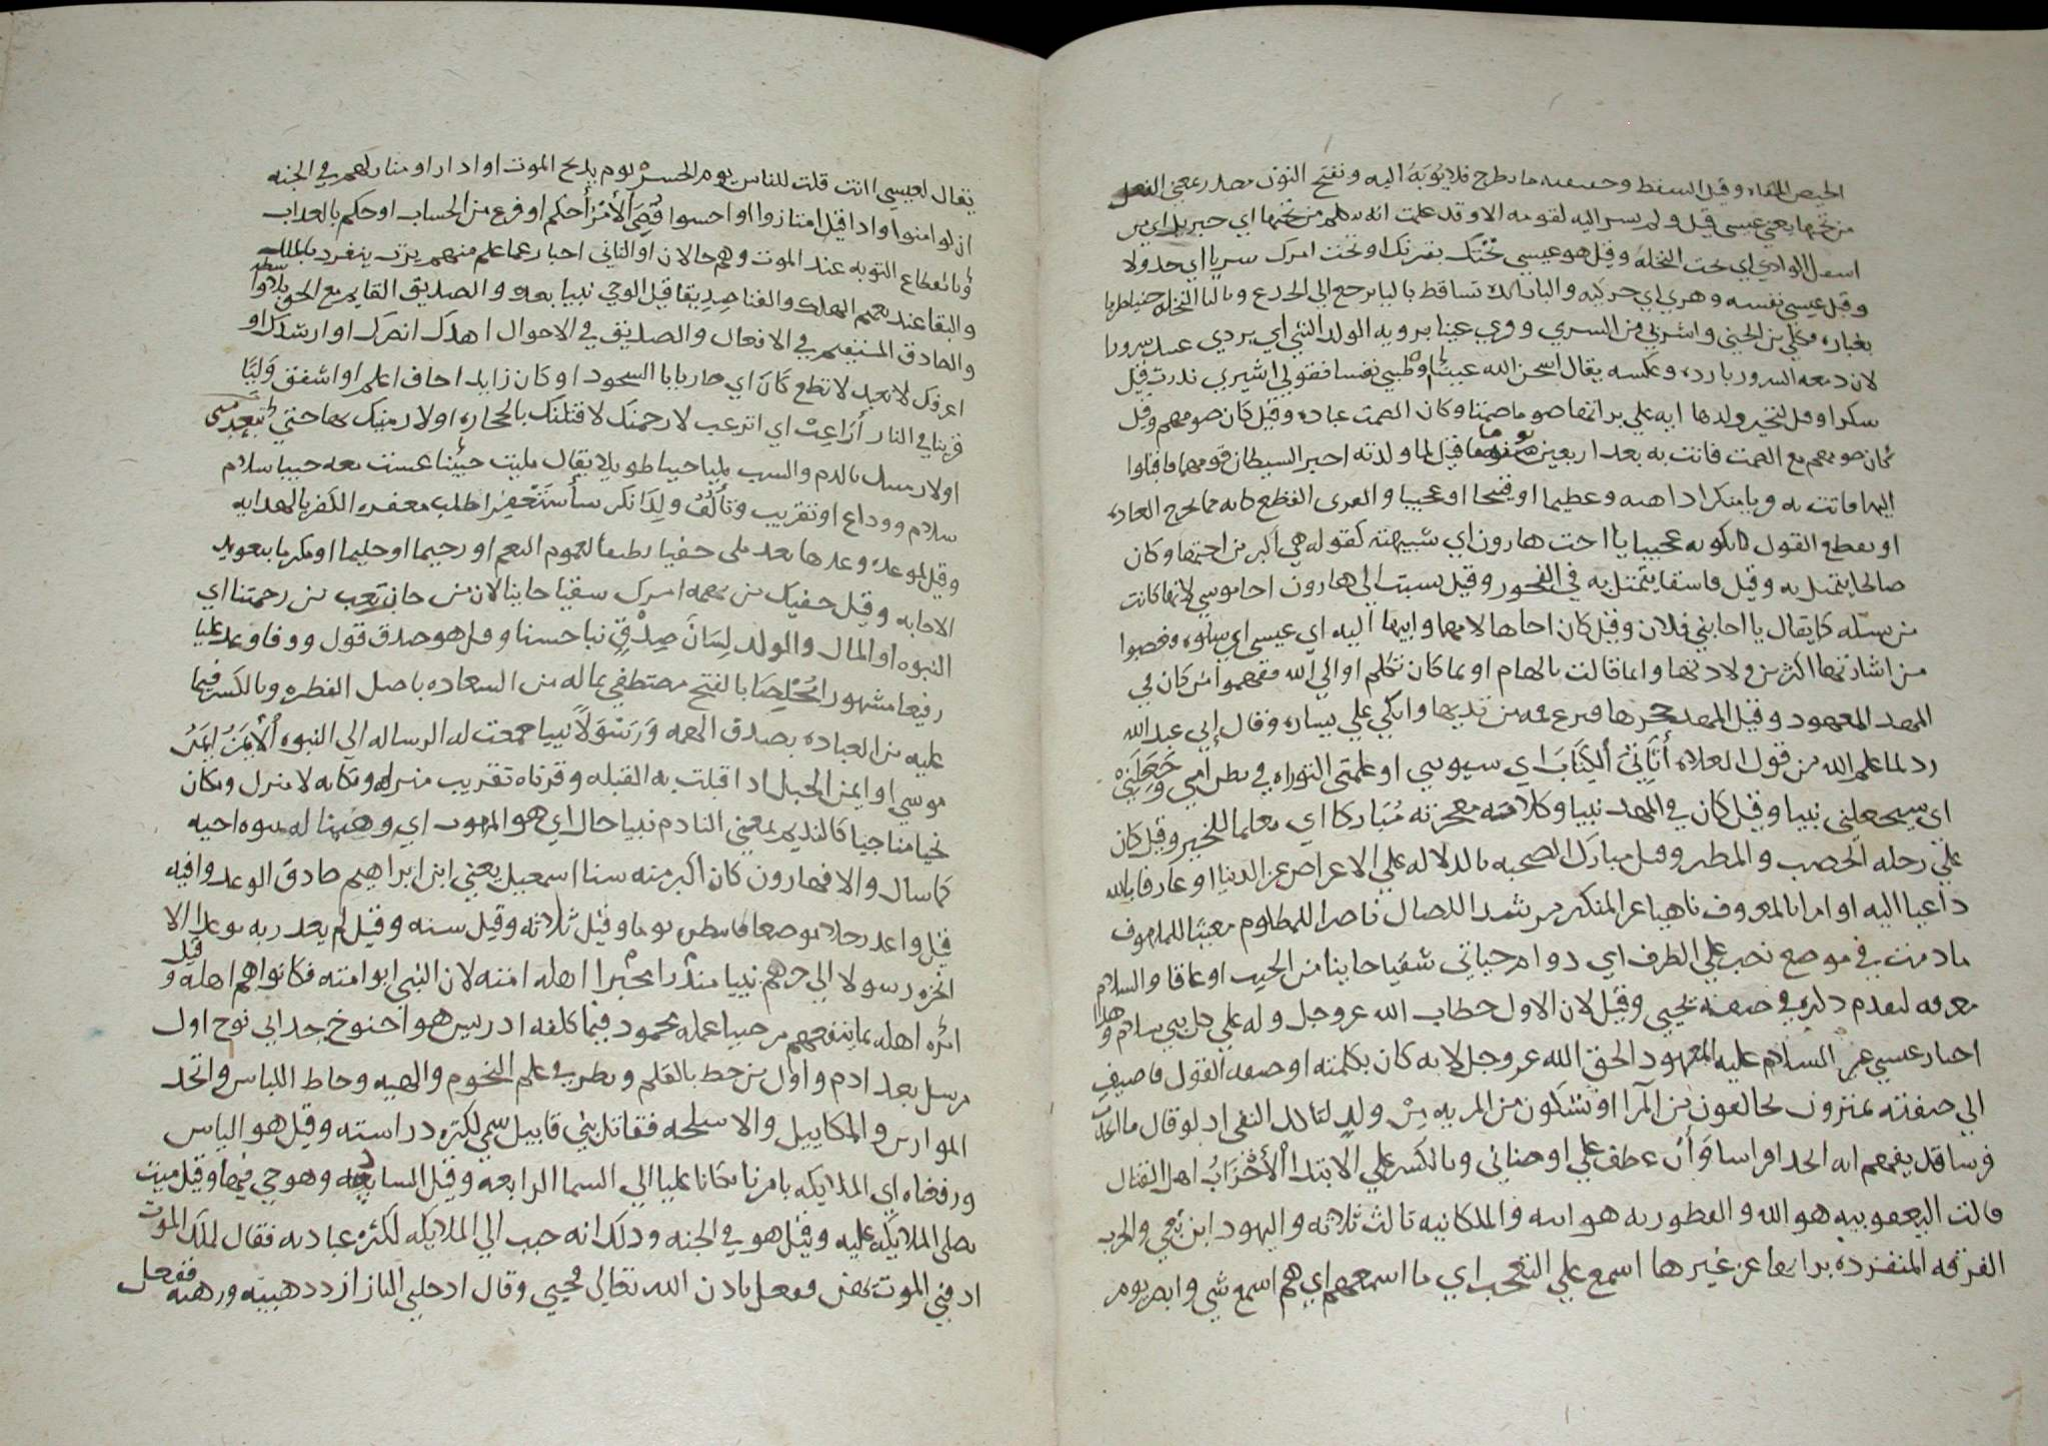 الحيض الملقاه وقيل السقط وحقيقته ما يطرح فلا يوبه اليه وبفتح النون مصدر بمعني الفعل
من تحتها يعني عيسي قيل ولم يسر اليه لقومه الا وقد علمت انه يكلم من تحتها اي جبريل اي من
اسفل الوادي اي تحت النخلة وقيل هو عيسي تحتك بقربك او تحت امرك سريا اي جدولا
وقيل عيسي نفسه وهزي اي حركيه والبا زايده تساقط باليا يرجع الي الجذع وبالتا النخلة جنيا طريا
بغباره فكلي من الجني واشربي من السري وقري عينا برويه الولد النبي اي بردي عينك سرورا
لان دمعه السرور بارده وعكسه يقال اسخن الله عينه او طيبي نفسا فقولي اشيري نذرت قيل
سكرا وقيل لتخير ولدها ايه علي براتها صوما صمتا وكان الصمت عباده وقيل كان صومهم وقيل
كان صومهم مع الصمت فاتت به بعد اربعين يوما قيل لما ولدته اخبر الشيطان قومها فاقبلوا
اليها فاتت به فريا منكرا داهيه وعظيما او قبيحا او عجيبا والفري القطع كانه مما يخرج العاده
او يقطع القول لكونه عجيبا يا اخت هارون اي شبيهته كقوله هي اكبر من اختها وكان
صالحا يتمثل به وقيل فاسقا يتمثل به في الفجور وقيل نسبت الي هارون اخا موسي لانها كانت
من نسله كما يقال يا اخا بني فلان وقيل كان اخاها لامها وابيها اليه اي عيسي اي سلوه فغضبوا
من اشارتها اكثر من ولادتها وانما قالت بالهام او بما كان تكلم او الي الله ففهموا من كان في
المهد المعهود وقيل المهد حجرها فنزع فمه من ثديها واتكي علي يساره وقال اني عبد الله
رد لما علم الله من قول الغلاه أتاني الكتاب اي سيوتيني او علمني التوراه في بطن امي وجعلني
اي سيجعلني نبيا وقيل كان في المهد نبيا وكلامه معجزته مُبَاركا اي معلما للخير وقيل كان
علي رحله الخصب والمطر وقيل مبارك الصحبه بالدلاله علي الاعراض عن الدنيا او عارفا بالله
داعيا اليه او امرا بالمعروف ناهيا عن المنكر مرشدا للضال ناصرا للمظلوم مغيثا للملهوف
ما دمت في موضع نصب علي الظرف اي دوام حياتي شقيا خايبا من الخير او عاقا والسلام
معرفه لتقدم ذكره في صفة يحيي وقيل لان الاول خطاب الله عز وجل وله علي كل نبي سلام وهذا
اخبار عيسي عن السلام عليه المعهود الحق الله عز وجل لانه كان بكلمته او صفه القول فاضيف
الي صفته تمترون تخالفون من المرآ او تشكون من المريه مِنْ ولدٍ لتاكد النفي اذ لو قال ما اتخذ
فرسا قد يفهم انه اتخذ افراسا وَأَنّ عطف علي اوصاني وبالكسر علي الابتدا الأَحْزَابُ اهل القتال
قالت اليعقوبيه هو الله والنسطوريه هو ابنه والملكانيه ثالث ثلاثه واليهود ابن بغي والحزب
الفرقه المنفرده برايها عن غيرها اسمع علي التعجب اي ما اسمعهم اي هم اسمع شي وابصر يوم
يقال لعيسي اانت قلت للناس يوم الحسرة يوم يذبح الموت او اذا راو منازلهم في الجنه
ان لو امنوا او اذا قيل امتازوا او اخسوا قُضِيَ الأَمْرُ أحكم او فرغ من الحساب او حكم بالعذاب
او بانقطاع التوبه عند الموت وهم حالان او الثاني اخبار عما علم منهم نرث ينفرد بالملك
والبقا عند نعيم الهلاك والفنا صِدِيقا قبل الوحي نبيا بعده والصديق القايم مع الحق
والصادق المستقيم في الافعال والصديق في الاحوال اهدك انصرك او ارشدك او
اعرفك لا تعبد لا تطع كَانَ اي صار بابا السجود او كان زايد اخاف اعلم او اشفق وَليًّا
قرينا في النار أرَاغِبٌ اي اترغب لارجمنك لاقتلنك بالحجاره او لارمينك بها حتي تبعد مني
او لارسلك بالذم والسب مليا حينا طويلا يقال مليت حبيبا عشت معه حبيبا سلام
سلام ووداع او تقريب وتألف ولذا نكر سأستغفر اطلب مغفره الكفر بالهدايه
وقيل لموعدة وعدها بعد ملي حفيا لطيفا لعموم النعم او رحيما او حليما او مكرما بتعويد
الاجابه وقيل حفيك من يهمه امرك شقيا خايبا لان من خاب تعب من رحمتنا اي
النبوه او المال والولد لِسَانَ صِدْقٍ ثنا حسنا وقيل هو صدق قول ووفا وعد عليا
رفيعا مشهورا مُخْلَصَا بالفتح مصطفي بما له من السعاده باصل الفطره وبالكسر فيما
عليه من العباده بصدق الهمه وَرَسُولاً نبيا جمعت له الرساله الي النبوه الأَيمَنِ ايمن
موسي او ايمن الجبل اذا قبلت به القبله وقرناه تقريب منزله ومكانه لا منزل ومكان
نجيا مناجيا كالنديم بمعني النادم نبيا حال اي هو الموهوب اي وهبنا له نبوه اخيه
كما سال والا فهارون كان اكبر منه سنا اسمعيل يعني ابن ابراهيم صادق الوعد وافيه
قيل واعد رجلا موضعا فانتظره يوما وقيل ثلاثه وقيل سنه وقيل لم يعد ربه بوعد الا
انجزه رسولا الي جرهم نبيا منذرا مخبرا اهله امته لان النبي ابو امته فكانوا هم اهله وقيل
امره اهله بما ينفعهم مرضيا عمله محمود فيما كلفه ادريس هو احنوخ جد ابي نوح اول
مرسل بعد ادم واول من خط بالقلم ونظر في علم النجوم والهيه وخاط اللباس واتخذ
الموازين والمكاييل والاسلحه فقاتل بني قابيل سمي لكثره دراسته وقيل هو الياس
ورفعناه اي الملايكه بامرنا مكانا عليا الي السما الرابعه وقيل السادسه وهو حي فيها وقيل ميت
يصلي الملايكه عليه وقيل هو في الجنه وذلك انه حبب الي الملايكه لكثره عبادته فقال لملك الموت
اذقني الموت يهن ففعل باذن الله تعالي فحيي وقال ادخلني النار ازدد هيبه ورهبه ففعل